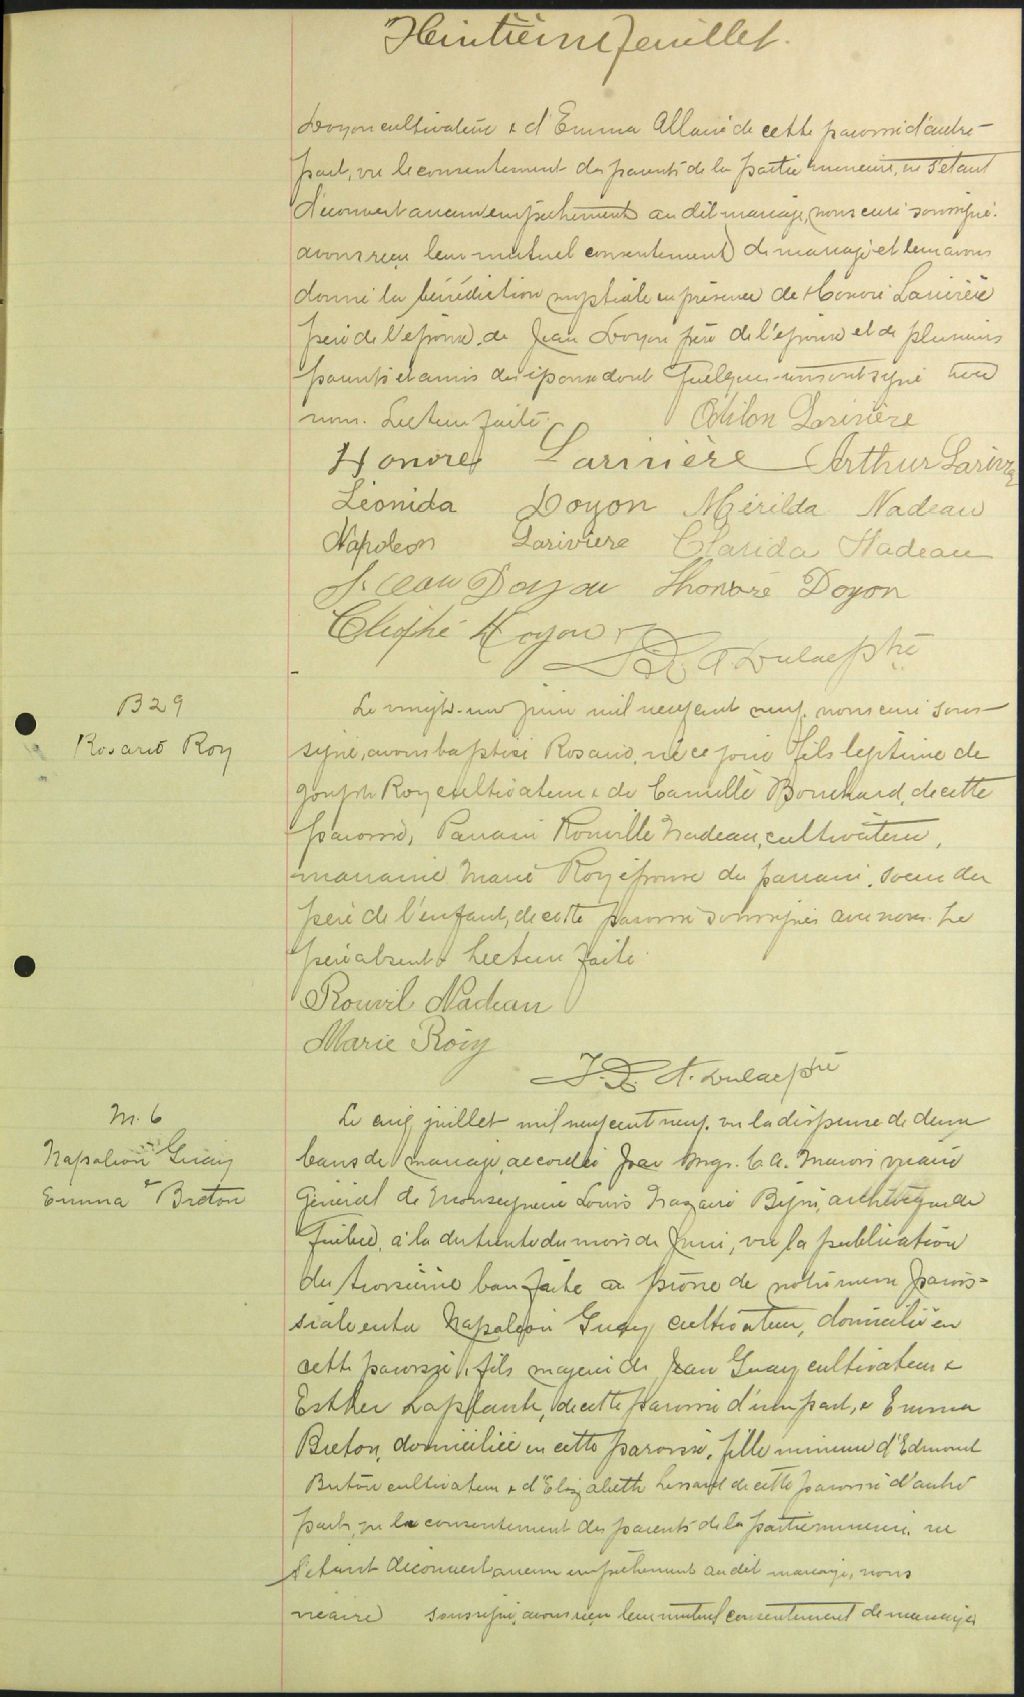 Huitième feuillet.
Doyon cultivateur & d'Emma Allaire de cette paroisse d'autre
part, vu le consentement des parents de la partie mineure, ne s'étant
découvert aucun empêchement au dit mariage, nous curé soussigné
avons reçu leur mutuel consentement de mariage et leur avons
donné la bénédiction nuptiale en présence de Honoré Larivière
père de l'époux, de Jean Doyon père de l'épouse et de plusieurs
parents et amis des époux dont quelques-uns ont signé avec
nous. Lecture faite.
Odilon Larivière
Honoré Larivière Arthur Larivière
Léonida Doyon Mérilda Nadeau
Napoleon Lariviere Clarida Nadeau
Jean Doyon Thonoré Doyon
Cléophé Doyon
J. A. Dulac ptre
B 29
Rosario Roy
Le vingt-un juin mil neuf cent neuf, nous curé sous-
signé, avons baptisé Rosario, né ce jour fils légitime de
Joseph Roy cultivateur & de Camille Bouchard, de cette
paroisse, Parrain Rouville Nadeau, cultivateur,
marraine Marie Roy épouse du parrain, soeur du
père de l'enfant, de cette paroisse soussignés avec nous. Le
père absent. Lecture faite.
Rouvil Nadeau
Marie Roiy
J. A. Dulac ptre
M. 6
Napoléon Guay
& Emma Breton
Le cinq juillet mil neuf cent neuf, vu la dispense de deux
bans de mariage, accordée par Mgr. C. A. Marois vicaire
Général de Monseigneur Louis Nazaire Bégin, archevêque de
Québec, à la date du trente du mois de Juin, vu la publication
du troisième ban faite au prône de notre messe parois-
siale entre Napoléon Guay cultivateur, domicilié en
cette paroisse, fils majeur de Jean Guay cultivateur &
Esther Laplante, de cette paroisse d'une part, & Emma
Breton, domiciliée en cette paroisse, fille mineure d'Edmond
Breton cultivateur & d'Elizabeth Lessard de cette paroisse d'autre
part, vu le consentement des parents de la partie mineure, ne
s'étant découvert aucun empêchement au dit mariage, nous
vicaire soussigné, avons reçu leur mutuel consentement de mariage